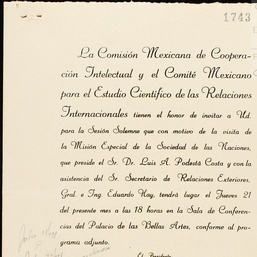 1743
La Comisión Mexicana de Coopera-
ción Intelectual y el Comité Mexicano
para el Estudio Científico de las Relaciones
Internacionales tienen el honor de invitar a Ud.
para la Sesión Solemne que con motivo de la visita de
la Misión Especial de la Sociedad de las Naciones,
que preside el Sr. Dr. Luis A. Podestá Costa y con la
asistencia del Sr. Secretario de Relaciones Exteriores,
Gral. e Ing. Eduardo Hay, tendrá lugar el Jueves 21
del presente mes a las 18 horas en la Sala de Conferen-
cias del Palacio de las Bellas Artes, conforme al pro-
grama adjunto.
El Presidente